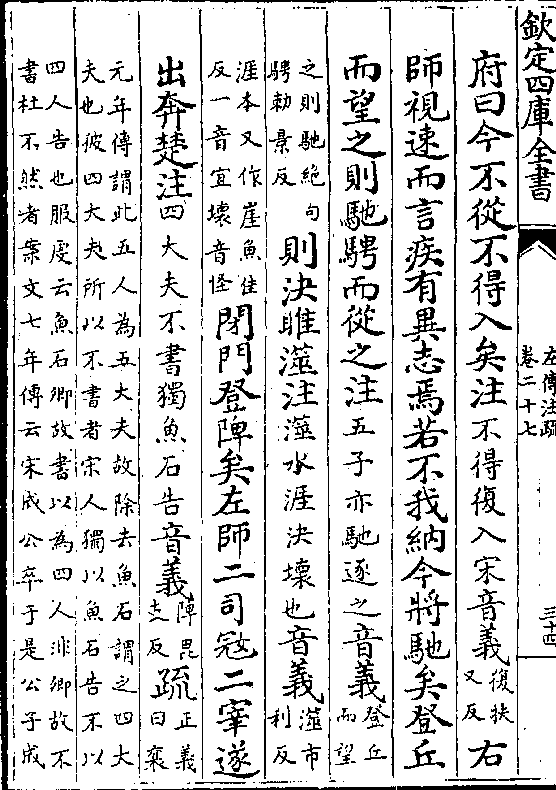 欽定四庫全書
左傳注疏
卷二十七
三十四
府曰今不從不得入矣注不得復入宋音義復扶又反右
師視速而言疾有異志焉若不我納今將馳矣登丘
而望之則馳騁而從之注五子亦馳逐之音義登丘而望
之則馳絶句騁勑景反則決睢澨注澨水涯決壞也音義澨市利反
涯本又作崖魚佳反一音宜壞音怪閉門登陴矣左師二司冦二宰遂
出奔楚注四大夫不書獨魚石告音義陴毘支反疏正義曰案
元年傳謂此五人為五大夫故除去魚石謂之四大
夫也彼四大夫所以不書者宋人獨以魚石告不以
四人告也服虔云魚石卿故書以為四人非卿故不
書杜不然者案文七年傳云宋成公卒于是公子成